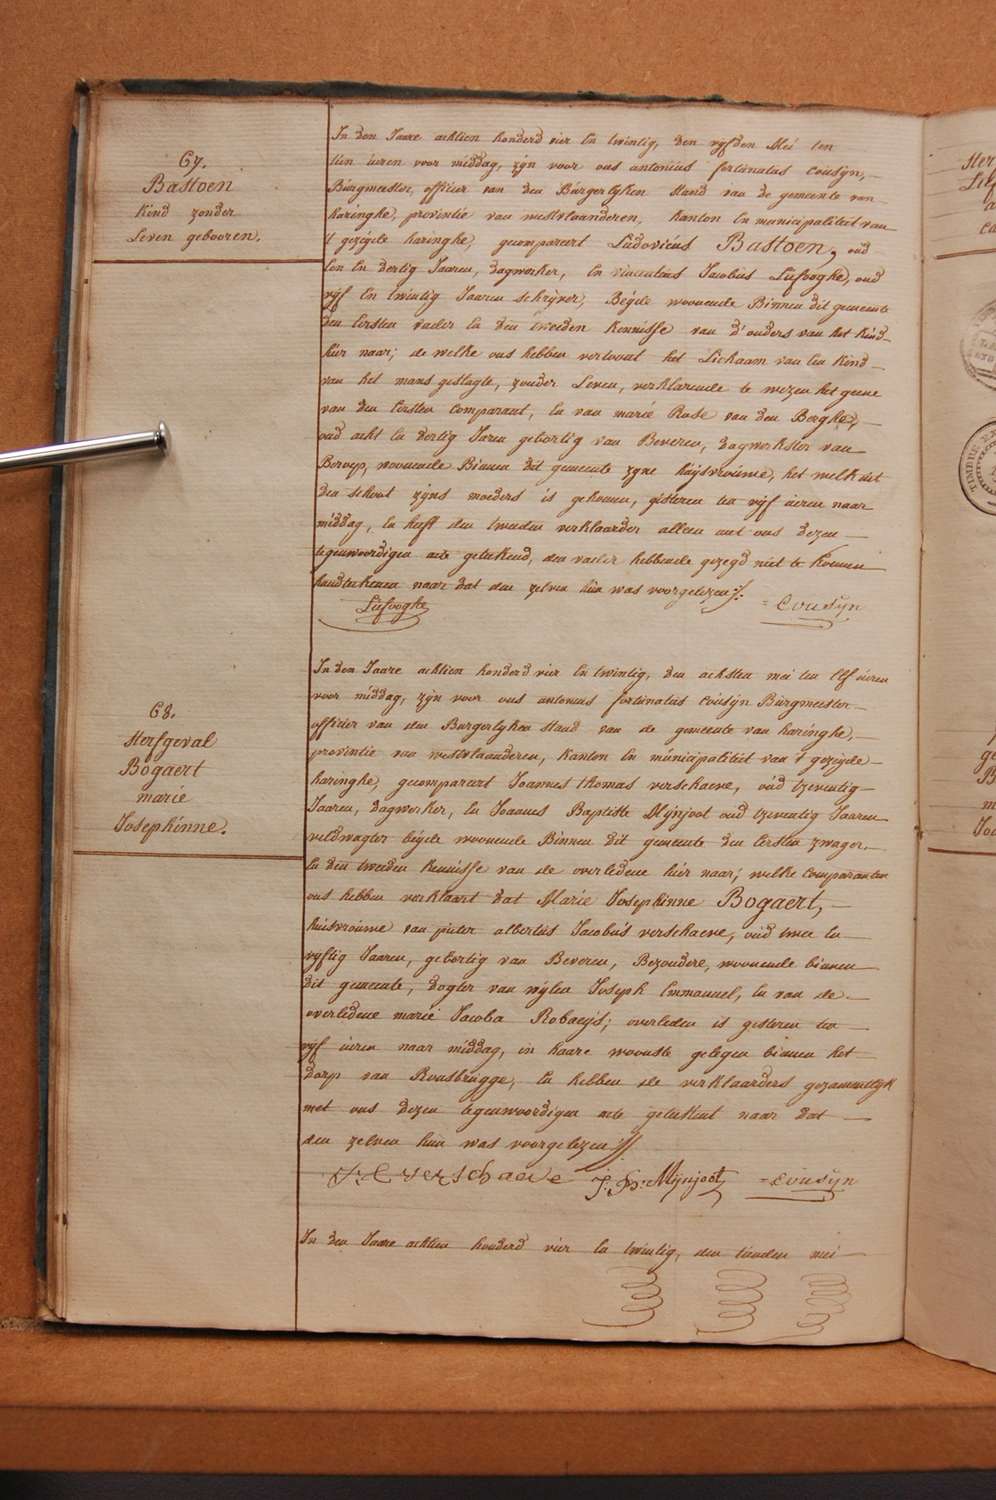 67.
Bastoen
kind zonder
Leven gebooren.
In den Jaare achtien honderd vier En twintig, den vyfden Mei ten
tien ùren voor middag, zÿn voor ons antonius fortunatus Coùsÿn,
Bùrgmeester, officier van den Bùrgerlÿken stand van de gemeente van
haringhe, provintie van westvlaanderen, kanton En municipaliteit van
't gezeÿde haringhe, gecompareert Ludovicùs Bastoen, oud
Een En dertig Jaaren, dagwerker, En vincentius Jacobus Lùfooghe, oud
vÿf En twintig Jaaren schrÿver, Béÿde woonende Binnen dit gemeente
den Eersten vader En den tweeden kennisse van d'ouders van het kind
hier naar; de welke ons hebben vertoont het Lichaam van Een kind
van het mans geslagte, zonder Leven, verklarende te wezen het geene
van den Eersten comparant, En van marie Rose van den Berghe,
oud acht En dertig Jaren gebortig van Beveren, dagwerkster van
Beroep, woonende Binnen dit gemeente zÿne hùÿsvroùwe, het welk uit
den schoot zÿns moeders is gekomen, gisteren ten vÿf ùeren naar
middag, En heeft den tweeden verklaarder alleen met ons dezen
tegenwoordigen acte geteekend, den vader hebbende gezegd niet te konnen
handteekenen naar dat den zelven hùn was voorgelezen ∫.
Lùfooghe = Coùsÿn
68.
Sterfgeval
Bogaert
marie
Josephinne.
In den Jaare achtien honderd vier En twintig, den achsten mei ten Elf ùeren
voor middag, zÿn voor ons antonius fortunatùs Coùsÿn Bùrgmeester
officier van den Bùrgerlÿken stand van de gemeente van haringhe,
provintie van westvlaanderen, kanton En mùnicipaliteit van 't gezeÿde
haringhe, gecompareert Joannes thomas verschaeve, oùd tzeventig
Jaaren, dagwerker, En Joannes Baptiste Mÿnjoot oud tzeventig Jaaren
veldwagter béÿde woonende Binnen dit gemeente den Eersten zwager
En den tweeden kennisse van de overledene hier naar; welke comparanten
ons hebben verklaart dat Marie Josephinne Bogaert,
hùisvroùwe van pieter albertùs Jacobùs verschaeve, oùd twee En
vÿftig Jaaren, gebortig van Beveren, Bezondere, woonende binnen
dit gemeente, dogter van wÿlen Joseph Emmanuel, En van de
overledene marie Jacoba Robaeÿs; overleden is gisteren ten
vÿf ùeren naar middag, in haare woonste gelegen binnen het
dorp van Roùsbrùgge, En hebben de verklaarders gezamentlÿk
met ons dezen tegenwoordigen acte geteekent naar dat
den zelven hùn was voorgelezen ∫∫
verschaeve J: B: Mÿnjoot = Coùsÿn
In den Jaare achtien honderd vier En twintig, den tienden mei